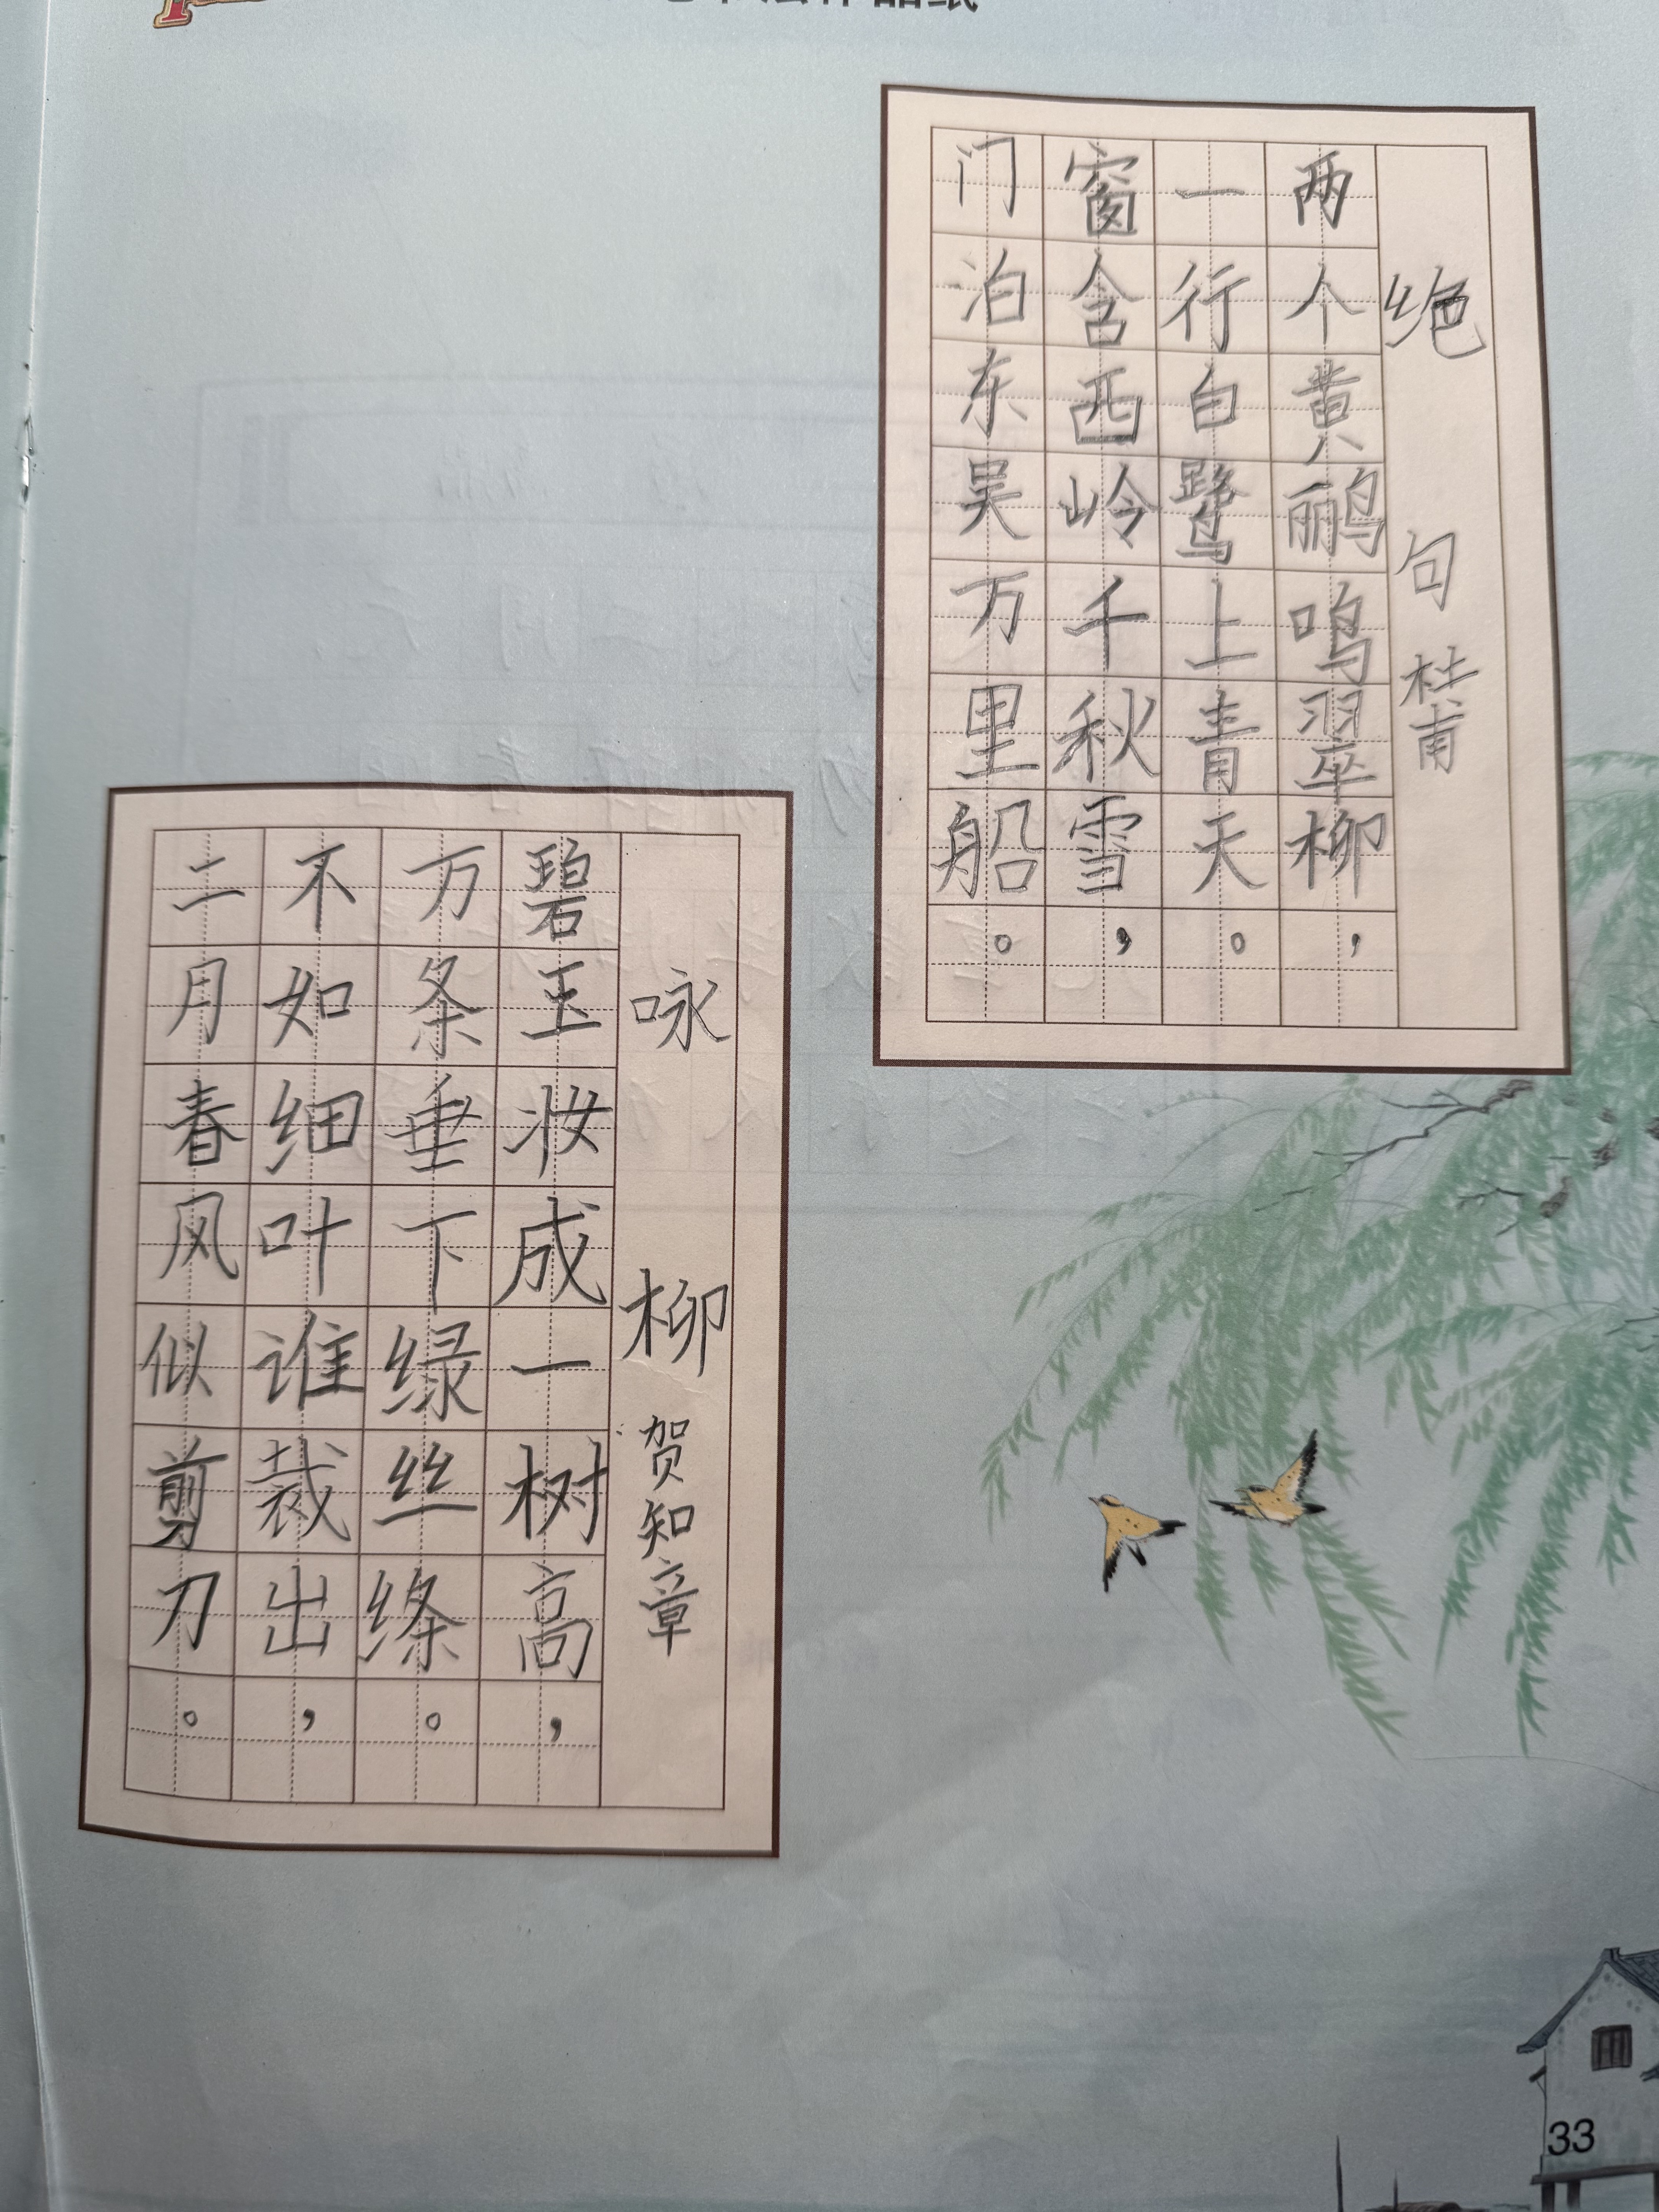 绝句 杜甫
两个黄鹂鸣翠柳，
一行白鹭上青天。
窗含西岭千秋雪，
门泊东吴万里船。
咏柳 贺知章
碧玉妆成一树高，
万条垂下绿丝绦。
不如细叶谁裁出，
二月春风似剪刀。
33